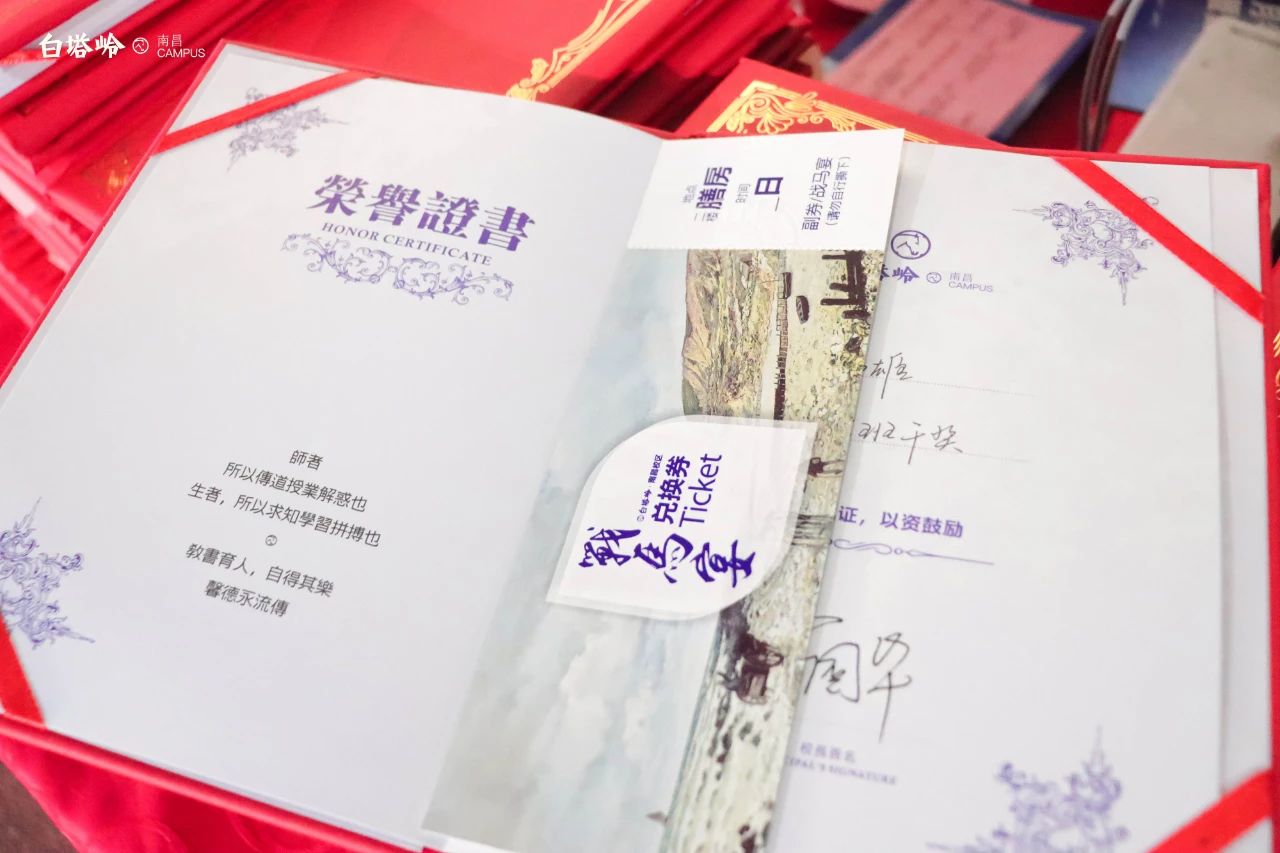 白塔岭 南昌
CAMPUS
榮譽證書
HONOR CERTIFICATE
師者
所以傳道授業解惑也
生者，所以求知學習拼搏也
教書育人，自得其樂
馨德永流傳
地点
二楼膳房
时间
一日
副券/战马宴
(请勿自行撕下)
白塔岭
兑换券
Ticket
戰馬宴
岭 南昌
CAMPUS
雄
班干奖
证，以资鼓励
校長簽名
CIPAL'S SIGNATURE